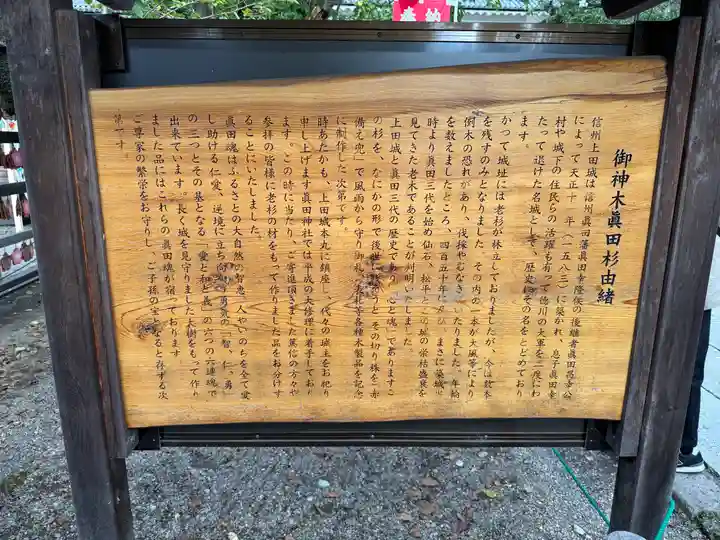 奉納
御神木眞田杉由緒
信州上田城は信州眞田藩眞田幸隆侯の後継者眞田昌幸公
によって天正十一年(一五八三)に築かれ、息子眞田幸
村や城下の住民らの活躍も有って徳川の大軍を二度にわ
たって退けた名城として、歴史にその名をとどめており
ます。
かつて城址には老杉が林立しておりましたが、今は数本
を残すのみとなりました。その内の一本が大風等により
倒木の恐れがあり、伐採やむなきにいたりました。年輪
を数えましたところ、四百五十年に及び、まさに築城
時より眞田三代を始め仙石、松平と 城の栄枯盛衰を
見てきた老木であることが判明いたしました。
上田城と眞田三代の歴史であり、心と魂」で若りますこ
の杉を、なにかの形で後世に うとその切り株を「赤
備え兜」で風雨から守り御札、 等各種木製品を記念
に制作した次第です。
時あたかも、上田城本丸に鎮座し、代々の城主をお祀り
申し上げます眞田神社では平成の大修理に着手しており
ます。この時に当たり、ご寄進頂きました篤信の方々や
参拝の皆様に老杉の材をもって作りました品をお分けす
ることにいたしました。
眞田魂はふるさとの大自然の智恵、人やいのちを全て愛
し助ける仁愛、逆境に立ち向かう勇気の「智、仁、勇」
の三つとその基となる「愛と和と義」の六つの六連魂で
出来ています。長く城を見守りました大樹をもって作り
ました品にはこれらの眞田魂が宿っております。
ご尊家の繁栄をお守りし、ご子孫の宝となると存する次
第です。